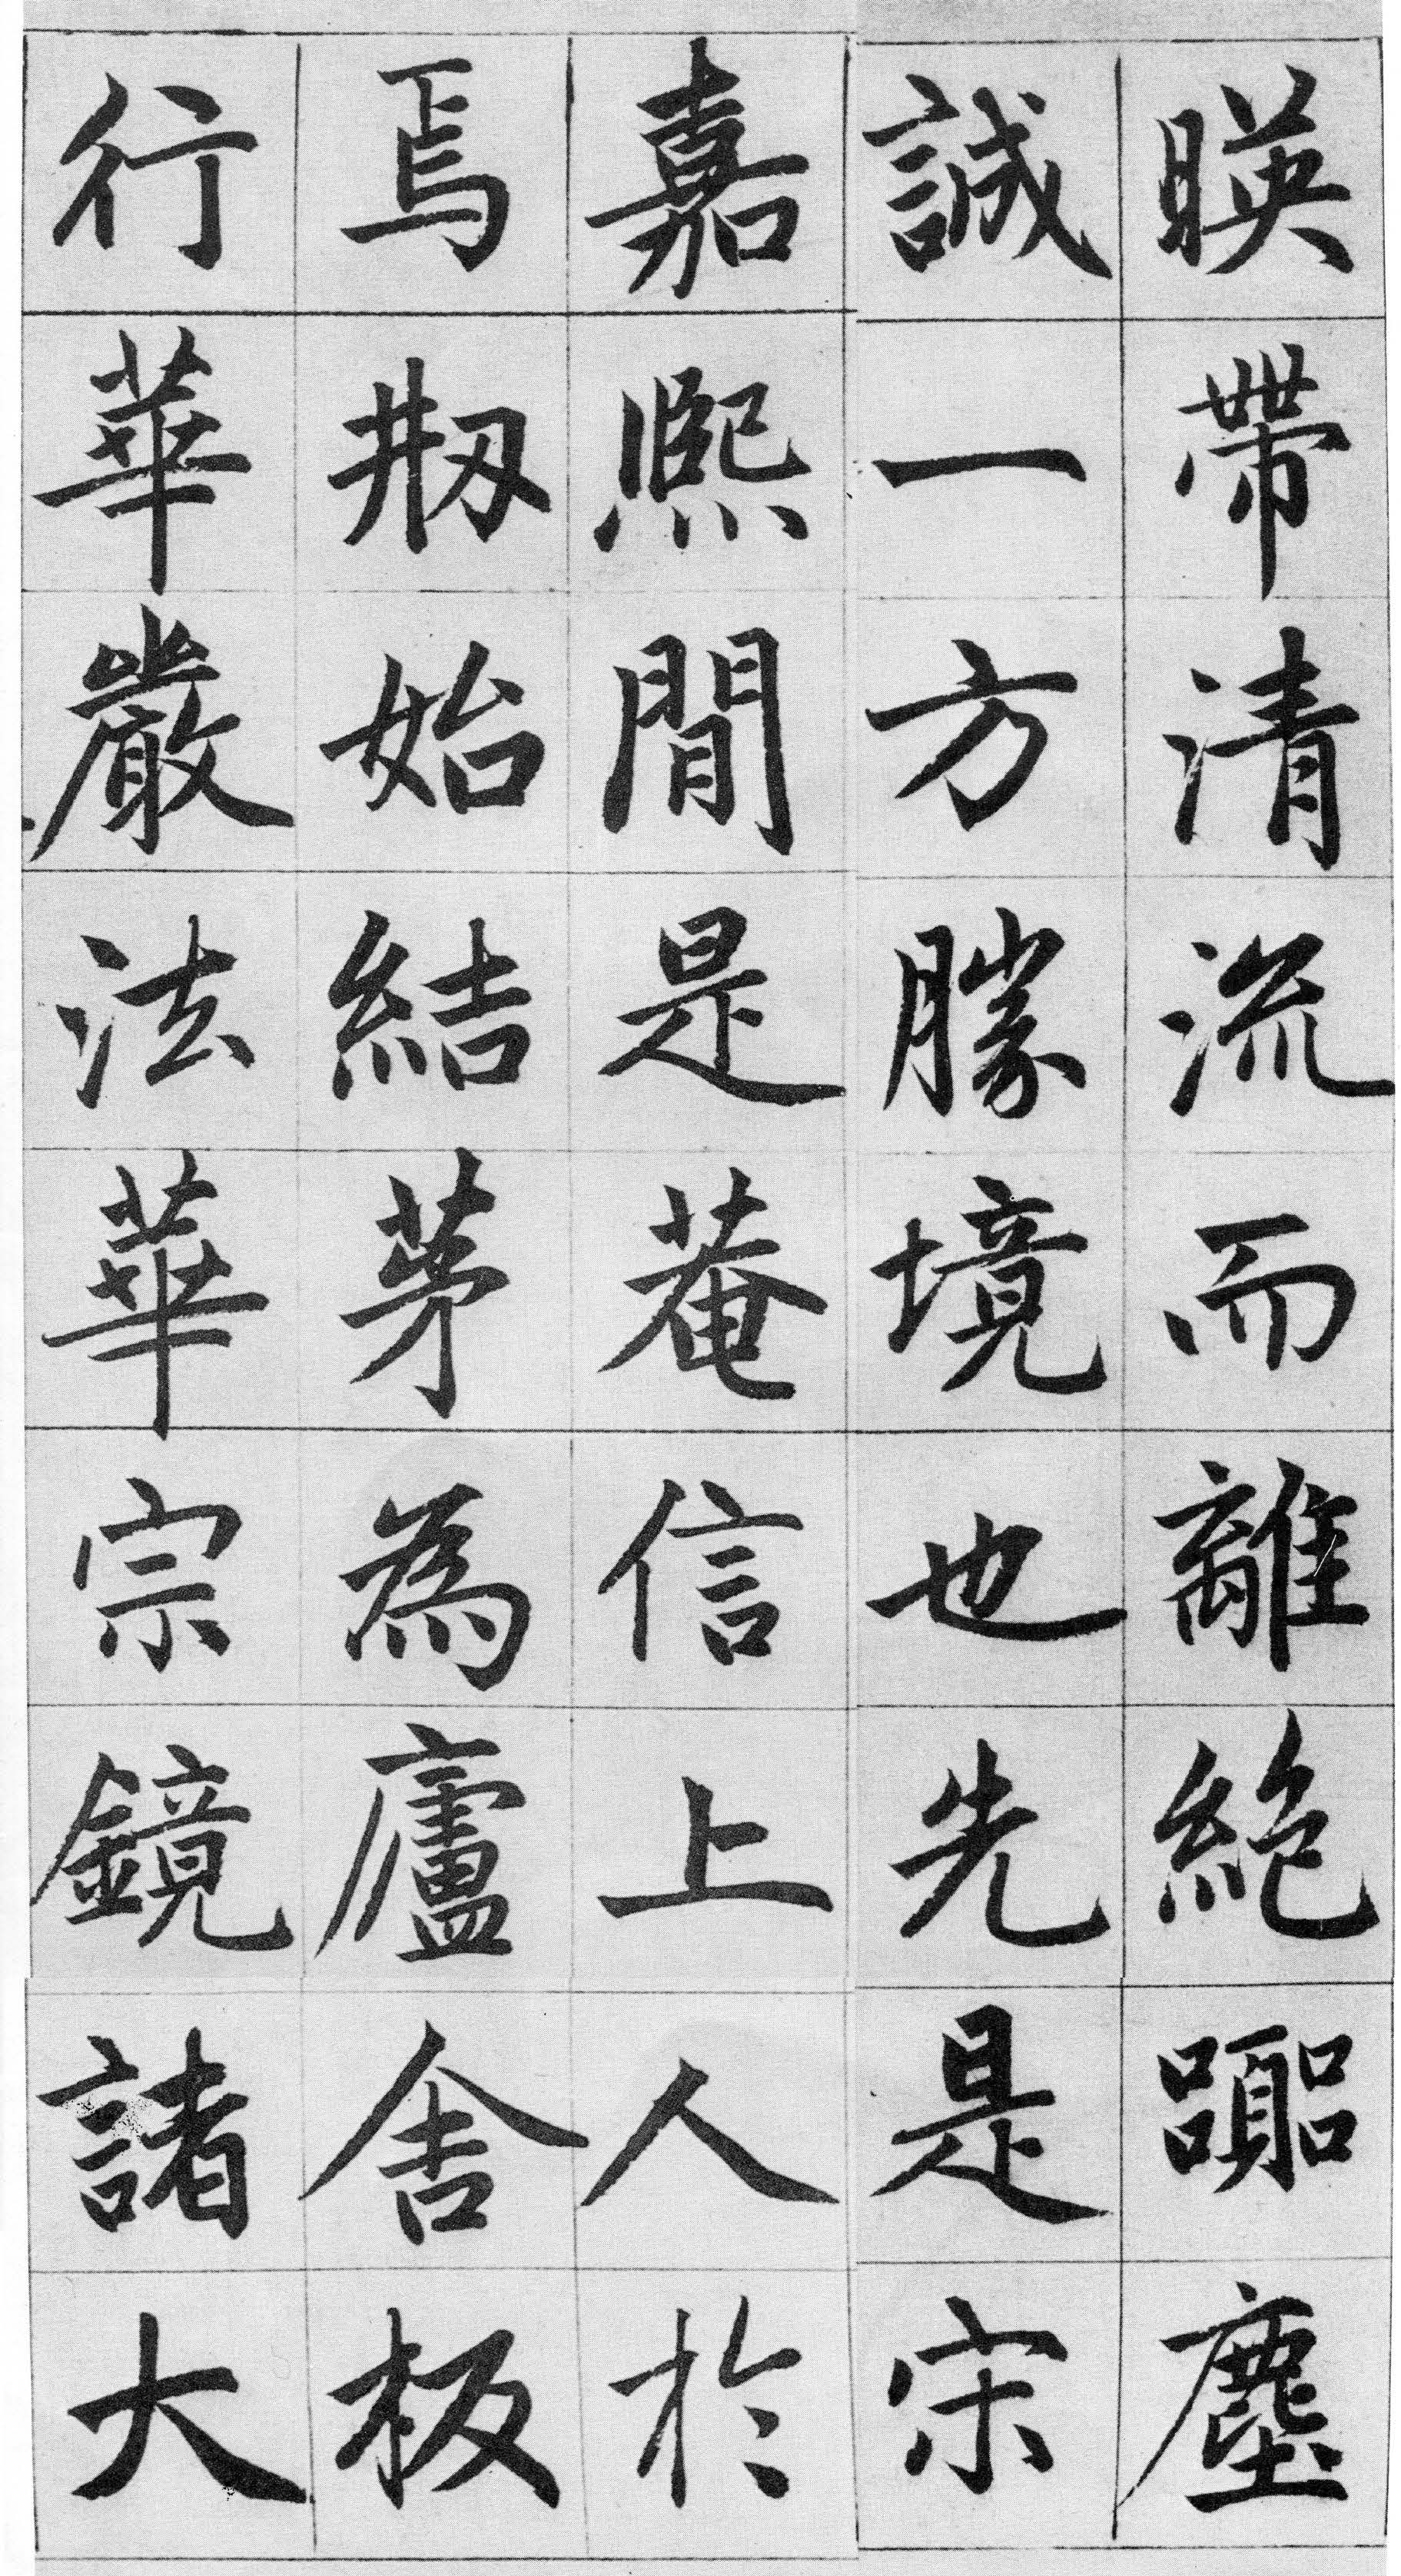 暎帶清流而離絶嚻塵
誠一方勝境也先是宋
嘉熈間是菴信上人於
焉刱始結茅為廬舍板
行華嚴法華宗鏡諸大